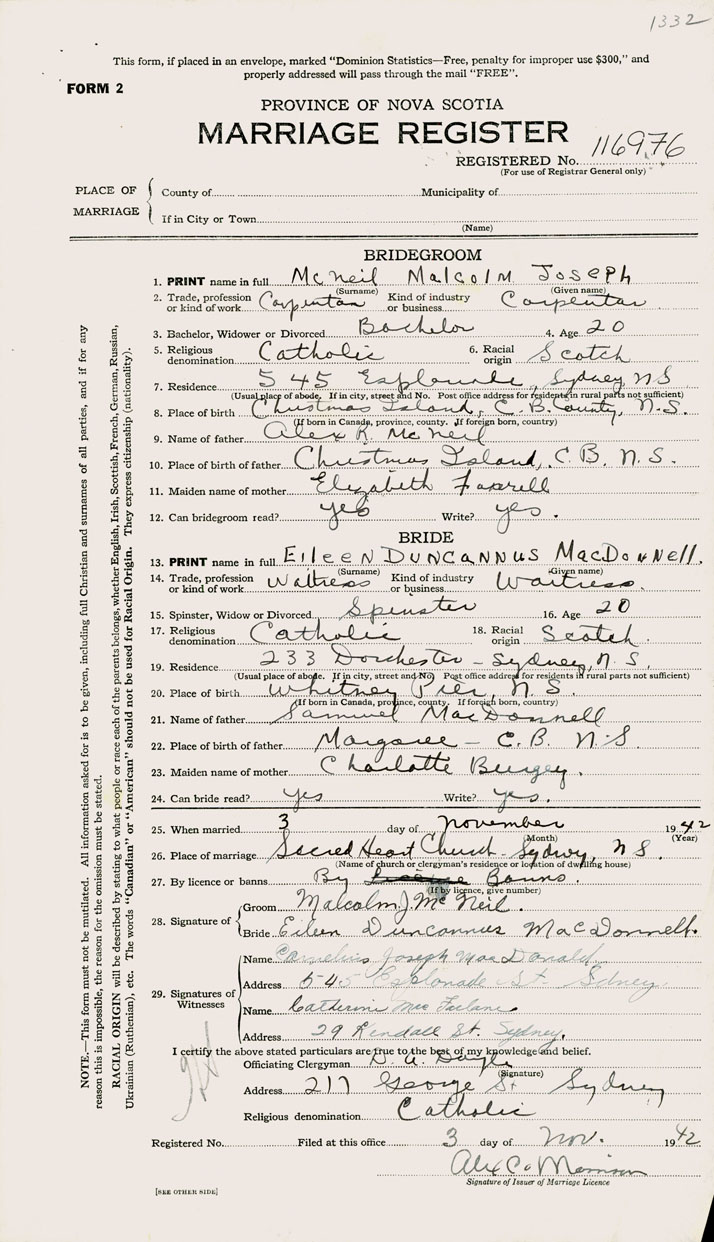 1332
This form, if placed in an envelope, marked "Dominion Statistics—Free, penalty for improper use $300," and
properly addressed will pass through the mail "FREE".
FORM 2
PROVINCE OF NOVA SCOTIA
MARRIAGE REGISTER
REGISTERED No. 116976
(For use of Registrar General only)
PLACE OF MARRIAGE
County of Municipality of
If in City or Town
(Name)
BRIDEGROOM
1. PRINT name in full McNeil Malcolm Joseph
(Surname) (Given name)
2. Trade, profession or kind of work Carpentar Kind of industry or business Carpentar
3. Bachelor, Widower or Divorced Bachelor 4. Age 20
5. Religious denomination Catholic 6. Racial origin Scotch
7. Residence 545 Esplanade, Sydney NS
(Usual place of abode. If in city, street and No. Post office address for residents in rural parts not sufficient)
8. Place of birth Christmas Island, C.B. County, N.S.
(If born in Canada, province, county. If foreign born, country)
9. Name of father Alex R. McNeil
10. Place of birth of father Christmas Island, C.B. N.S.
11. Maiden name of mother Elizabeth Farrell
12. Can bridegroom read? yes Write? yes.
BRIDE
13. PRINT name in full Eileen Duncannus MacDonnell.
(Surname) (Given name)
14. Trade, profession or kind of work Waitress Kind of industry or business Waitress.
15. Spinster, Widow or Divorced Spinster 16. Age 20
17. Religious denomination Catholic 18. Racial origin Scotch.
19. Residence 233 Dorchester - Sydney, N.S.
(Usual place of abode. If in city, street and No. Post office address for residents in rural parts not sufficient)
20. Place of birth Whitney Pier, N.S.
(If born in Canada, province, county. If foreign born, country)
21. Name of father Samuel MacDonnell
22. Place of birth of father Margaree - C.B. N.S.
23. Maiden name of mother Charlotte Burgey.
24. Can bride read? yes Write? yes.
25. When married 3 day of November 1942
(Month) (Year)
26. Place of marriage Sacred Heart Church - Sydney, N S.
(Name of church or clergyman's residence or location of dwelling house)
27. By licence or banns By Banns.
(If by licence, give number)
28. Signature of
Groom Malcolm J. McNeil.
Bride Eileen Duncannus MacDonnell.
29. Signatures of Witnesses
Name Cornelius Joseph MacDonald.
Address 545 Esplanade St. Sdney.
Name Catherine MacFarlane
Address 29 Kendall St. Sydney.
I certify the above stated particulars are true to the best of my knowledge and belief.
Officiating Clergyman D. A. Doyle
(Signature)
Address 217 George St Sydney
Religious denomination Catholic
Registered No. Filed at this office 3 day of Nov. 1942
Alex C. Morrison
Signature of Issuer of Marriage Licence
[SEE OTHER SIDE]
NOTE.—This form must not be mutilated. All information asked for is to be given, including full Christian and surnames of all parties, and if for any
reason this is impossible, the reason for the omission must be stated.
RACIAL ORIGIN will be described by stating to what people or race each of the parents belongs, whether English, Irish, Scottish, French, German, Russian,
Ukrainian (Ruthenian), etc. The words "Canadian" or "American" should not be used for Racial Origin. They express citizenship (nationality).